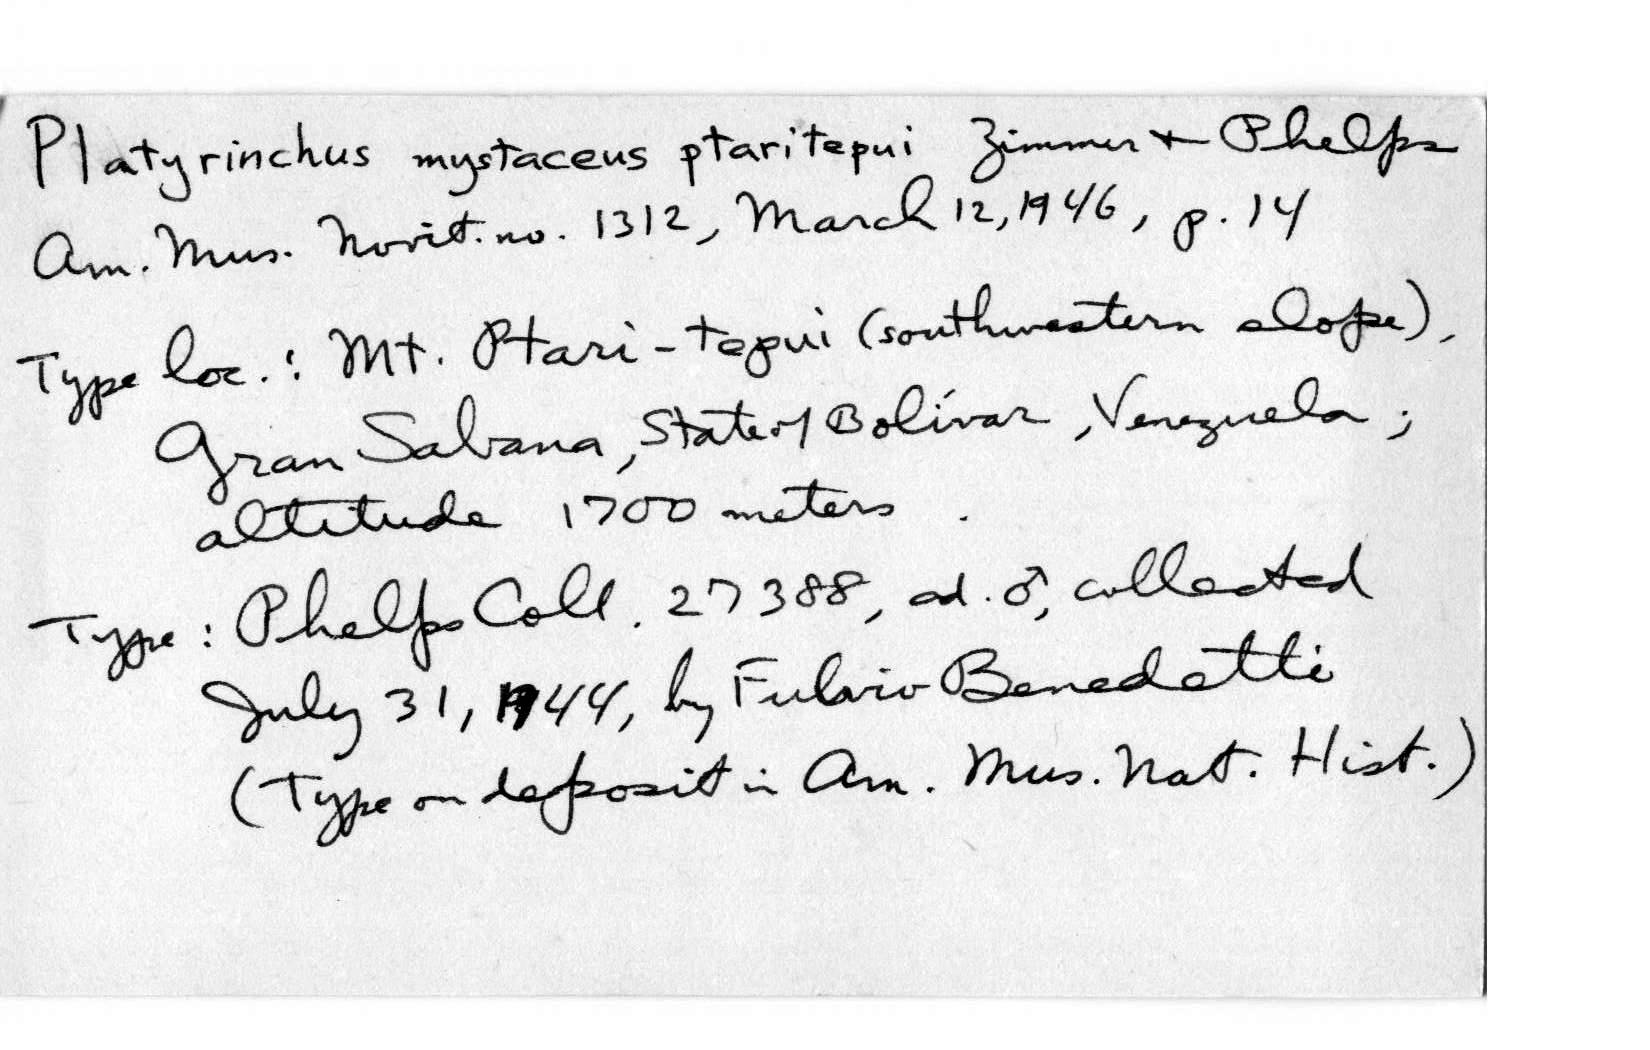 Platyrinchus mystaceus ptaritepui Zimmer + Phelps
Am. Mus. Novit. no. 1312, March 12, 1946, p. 14
Type loc.: Mt. Ptari-tepui (southwestern slope),
Gran Sabana, State of Bolívar, Venezuela;
altitude 1700 meters.
Type: Phelps Coll. 27388, ad. ♂, collected
July 31, 1944, by Fulvio Benedetti
(Type on deposit in Am. Mus. Nat. Hist.)